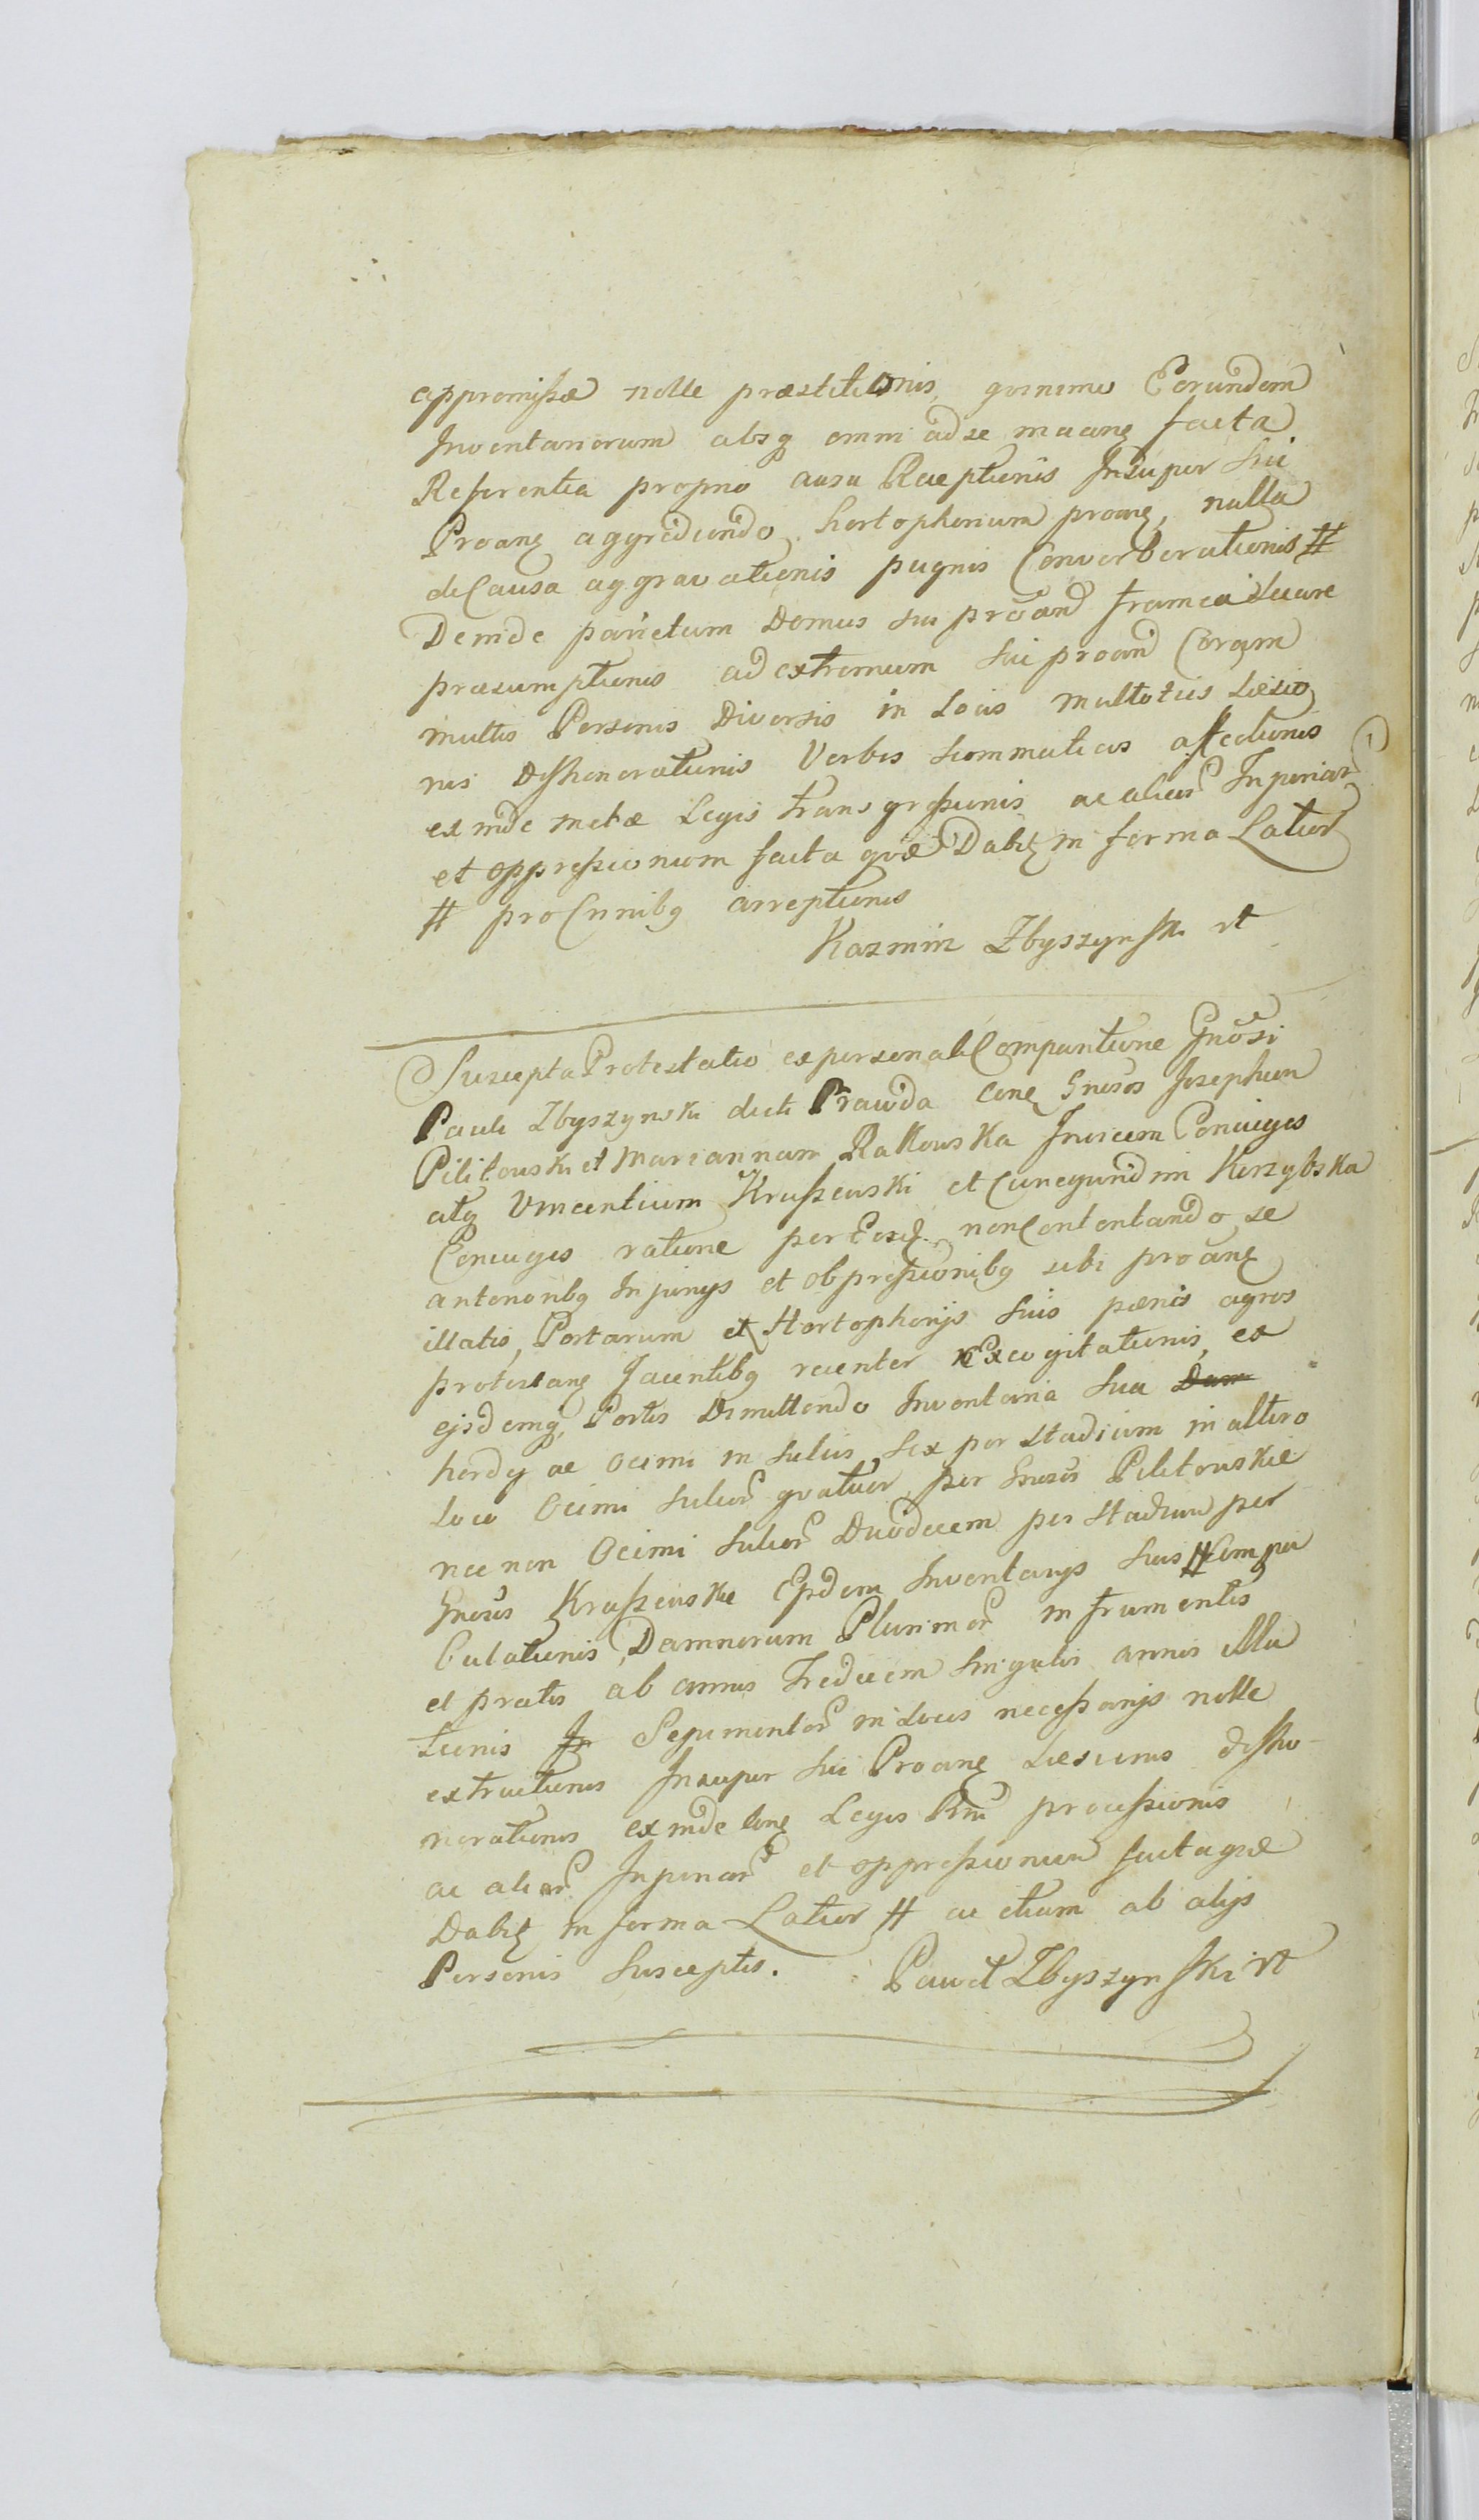 appromissæ nolle præstitionis, qvinimo Eorundem
Inventariorum absq omni ad se maang facta
Referentia proprio ausu Receptionis Insuper Sui
Proang aggrediendo Hortophorium proang, nulla
de Causa aggravationis pugnis Converberationis #
Deinde parietum Domus sui proand framea Secare
præsumptionis ad extremum sui proand Coram
multis Personis Diversis in Locis multoties Læsio
nis Dishonorationis Verbis Sommaticis affectionis
ex inde metæ Legis transgressionis ac aliar Injuriar
et oppressionum facta qvæ Dabit in forma Latior
# pro Crinibq arreptionis
Kazmirz Zbyszynski rt
Suscepta Protestatio ex personali Comparitione Gnosi
Pauli Zbyszynski dicti Prawda cong Gnosos Josephum
Pilitowski et Mariannam Rakowska Invicem Coniuges
atq Vincentium Kruszewski et Cunegundim Kirzybska
Coniuges ratione per Eosd. non Contentando se
anterioribq Injurijs et obpressionibq sibi proang
illatis, Portarum et Hortophorijs suis penes agros
protestang Jacentibq recenter Excogitationis, ex
ejsdemq Portis Dimittendo Inventaria sua Dam
hordej ac Ocimi in Sulcis Sex per stadium in altero
Loco Ocimi Sulcor qvatuor per Gnosos Pilitowskie
nec non Ocimi Sulcor Duodecem per stadium per
Gnosos Kruszewskie Ejsdem Inventarijs suis # Compa
Culationis, Damnorum Plurimor in frumentis
et pratis ab annis Tredecem Singulis annis illa
tionis In Sepimentor in Locis necessarijs nolle
extructionis Insuper sui Proang Læsionis disho-
norationis ex inde cong Legis Rni processionis
ac aliar Injuriar et oppressionum facta qvæ
Dabit in forma Latior # ac etiam ab alijs
Personis Susceptis. Paweł Zbyszynski rt